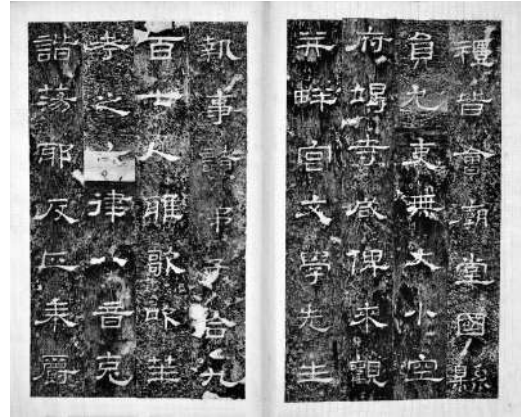 稷皆會廟堂國縣
員冗吏無大小空
府竭寺咸俾來觀
并畔宮文學先生
執事諸弟子合九
百七人雅歌吹笙
考之六律八音克
諧蕩邪反正奉爵